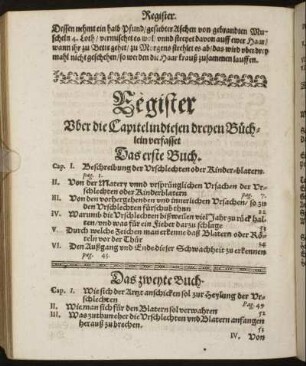 Register.
Dessen nehmt ein halb Pfund/ gesiebter Aschen von gebrandten Mu-
scheln 4. Loth/ vermischet es wol vnnd strewet davon auff ewer Haar/
wann ihr zu Bette gehet/ zu Morgens strehlet es ab/ das wird vber drey
mahl nicht geschehen/ so werden die Haar krauß zusammen lauffen.
Register
Vber die Capitel in diesen dreyen Büch-
lein verfasset
Das erste Buch.
Cap. I. Beschreibung der Vrschlechten oder Kinder-blatern.
pag. 1.
II. Von der Matery vnnd vrsprünglichen Vrsachen der Vr-
schlechten oder Kinderblatern
III. Von den vorhergehenden vnd innerlichen Vrsachen/ so zu
den Vrschlechten fürschub thun 22
IV. Warumb die Vrschlechten bißweilen viel Jahr zu rück hal-
ten/ vnd was für ein Fieber darzu schlage
V. Durch welche Zeichen man erkenne daß Blatern oder Rö-
teln vor der Thür 34
VI. Den Außgang vnd Ende dieser Schwachheit zu erkennen
pag. 43.
Das zweyte Buch.
Cap. I. Wie sich der Artzt anschicken sol zur Heylung der Vr-
schlechten pag. 49
II. Wie man sich für den Blatern sol verwahren 52
III. Was zuthun eher die Vrschlechten vnd Blatern anfangen
herauß zu brechen.
IV. Von